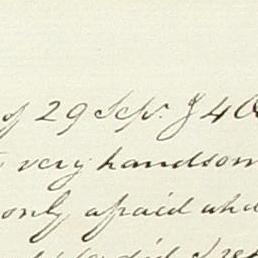 of 29 Sep. £40
very handsom
only afraid and
did